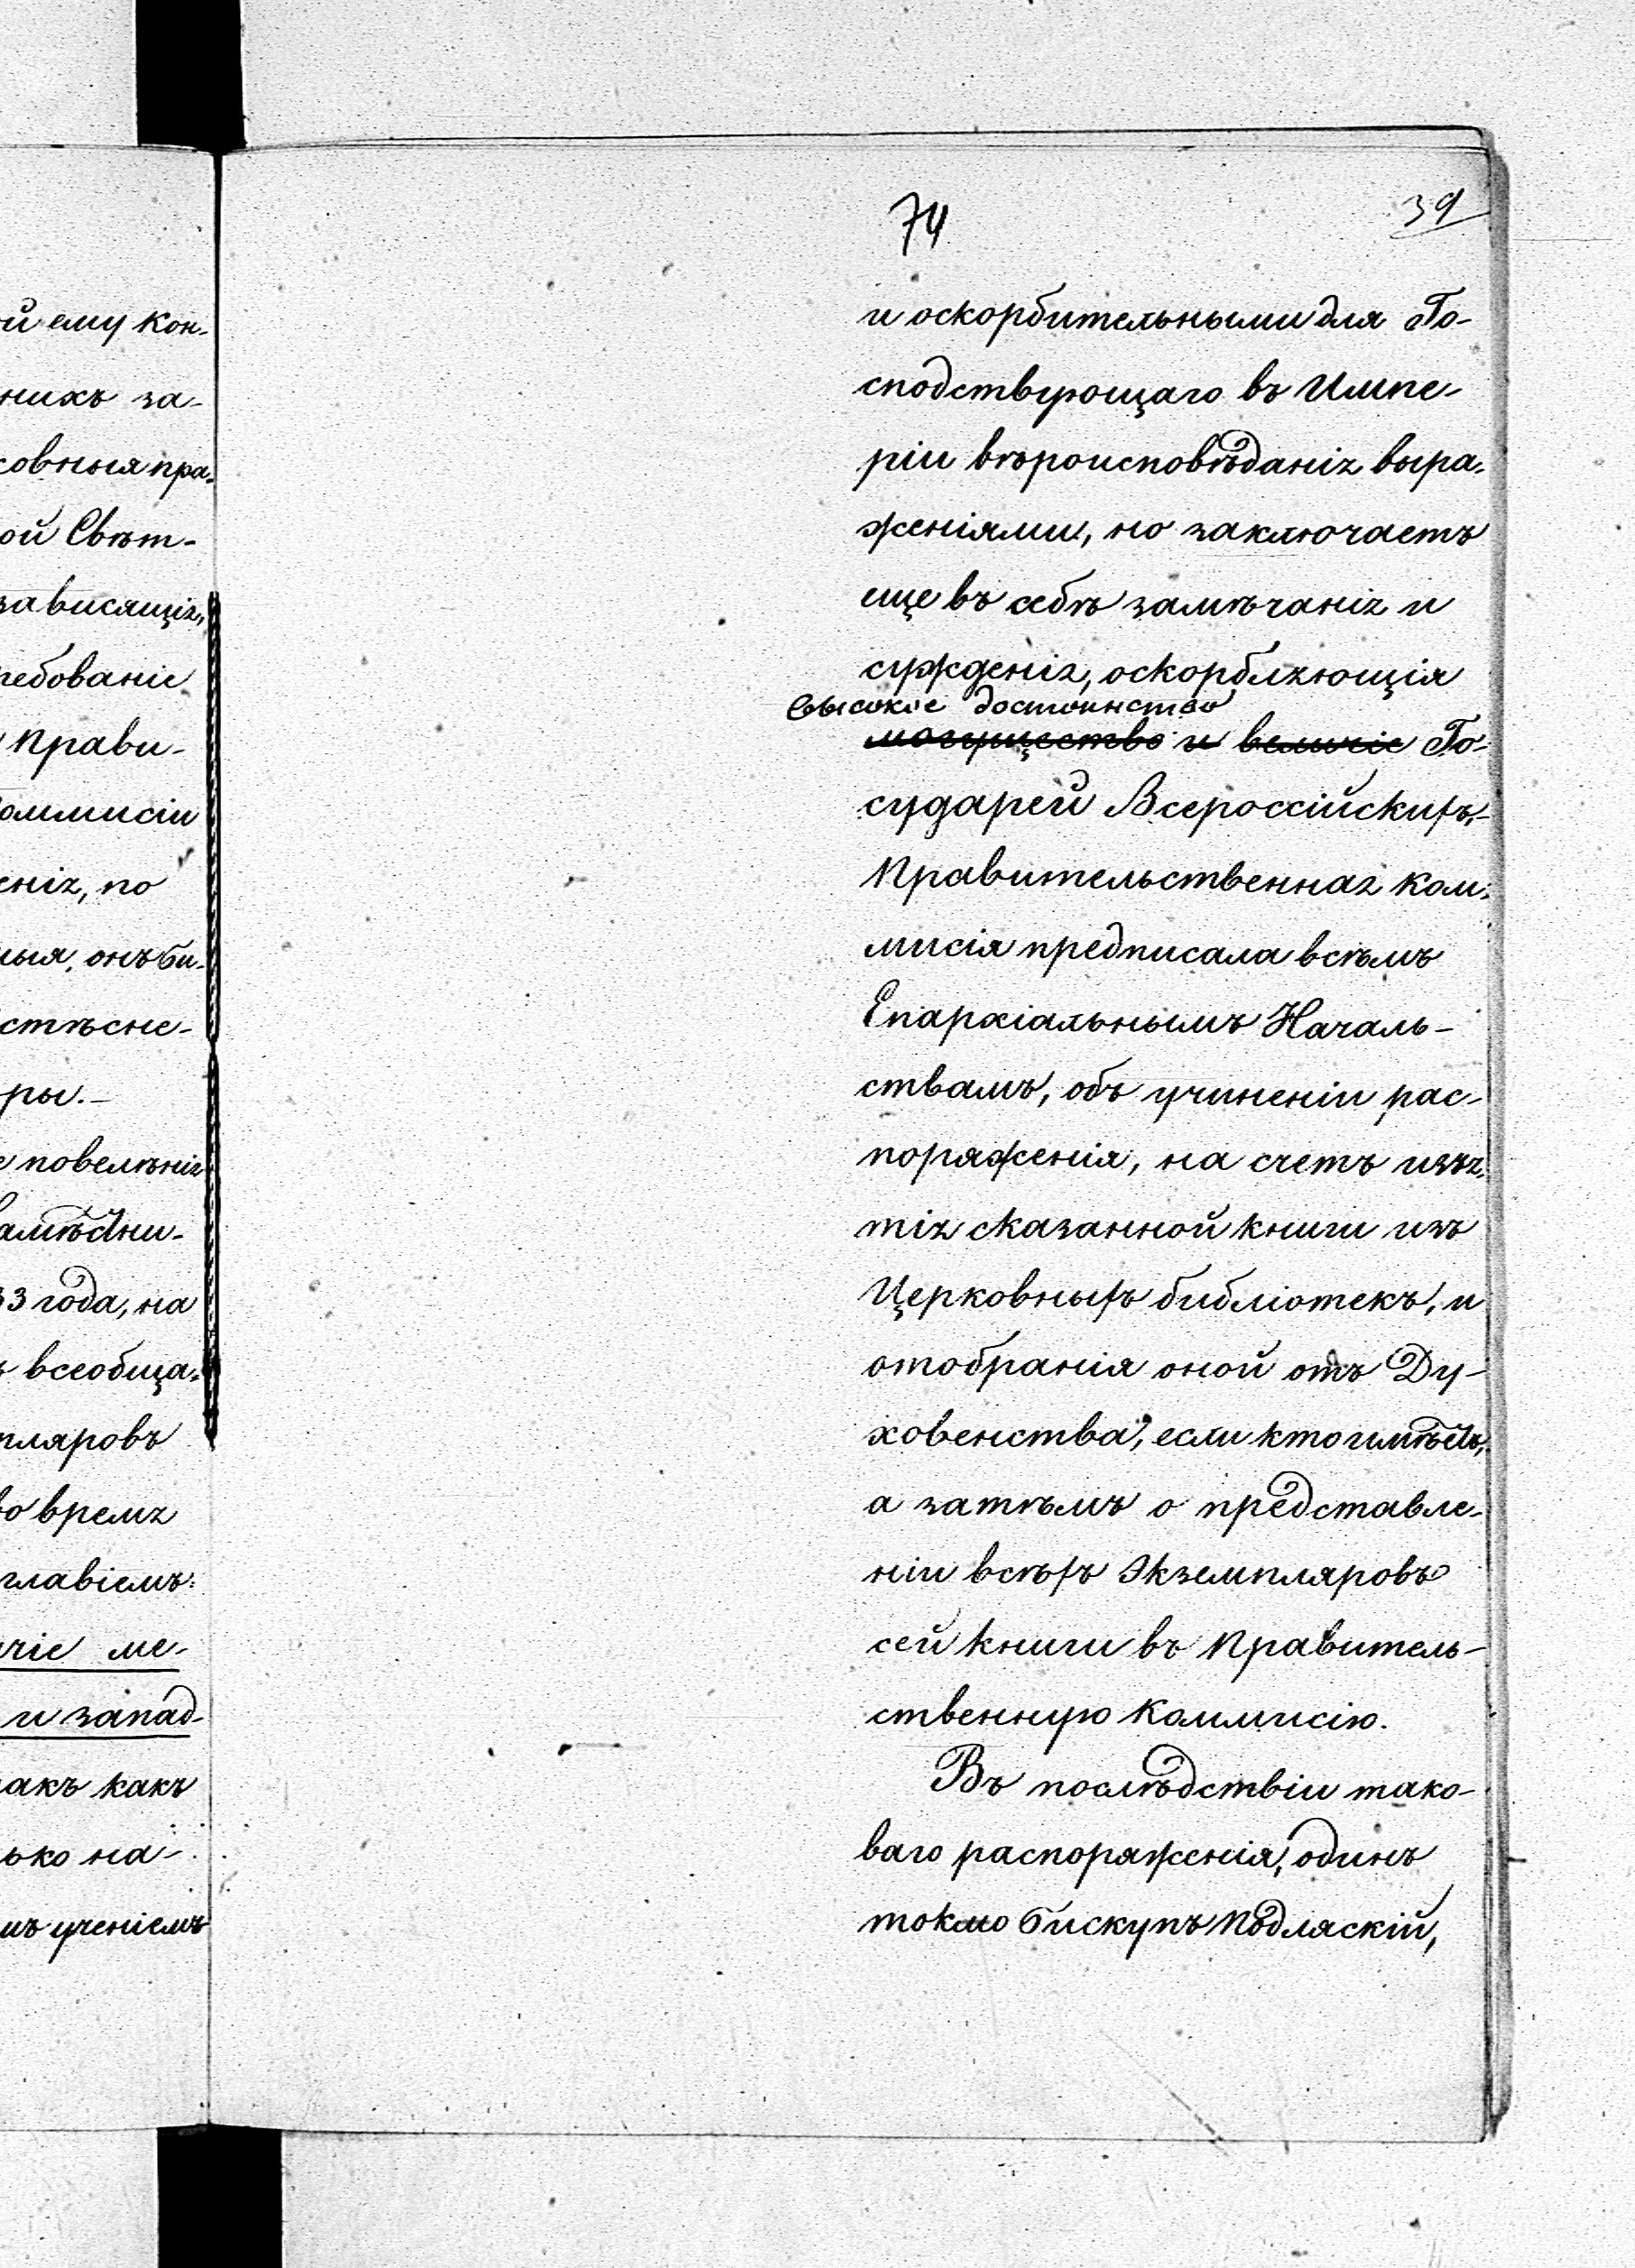 й ему кон-
нихъ за-
ковныя пра-
ой Свѣт-
зависящія,
ребованіе
Прави-
оммисіи
енія, по
ныя, онъ би-
стѣсне-
ры.-
е повелѣнія
амѣстни-
33 года, на
ъ всеобща-
пляровъ
во время
главіемъ:
чіе ме-
и запад-
такъ какъ
ько на-
мъ ученіемъ
74
39
и оскорбительными для Го-
сподствующаго въ Импе-
ріи вѣроисповѣданія выра-
женіями, но заключаетъ
еще въ себѣ замѣчанія и
сужденія, оскорбляющія
высокое достоинство
могущество и величіе Го-
сударей Всероссійскихъ,-
Правительственная ком-
мисія предписала всѣмъ
Епархіальнымъ Началь-
ствамъ, объ учиненіи рас-
поряженія, на счетъ изъя-
тія сказанной книги изъ
Церковныхъ библіотекъ, и
отобранія оной отъ Ду-
ховенства, если кто имѣетъ,
а затѣмъ о представле-
ніи всѣхъ Экземпляровъ
сей книги въ Правитель-
ственную Коммисію.
Въ послѣдствіи тако-
ваго распоряженія, одинъ
токмо Бискупъ Подляскій,